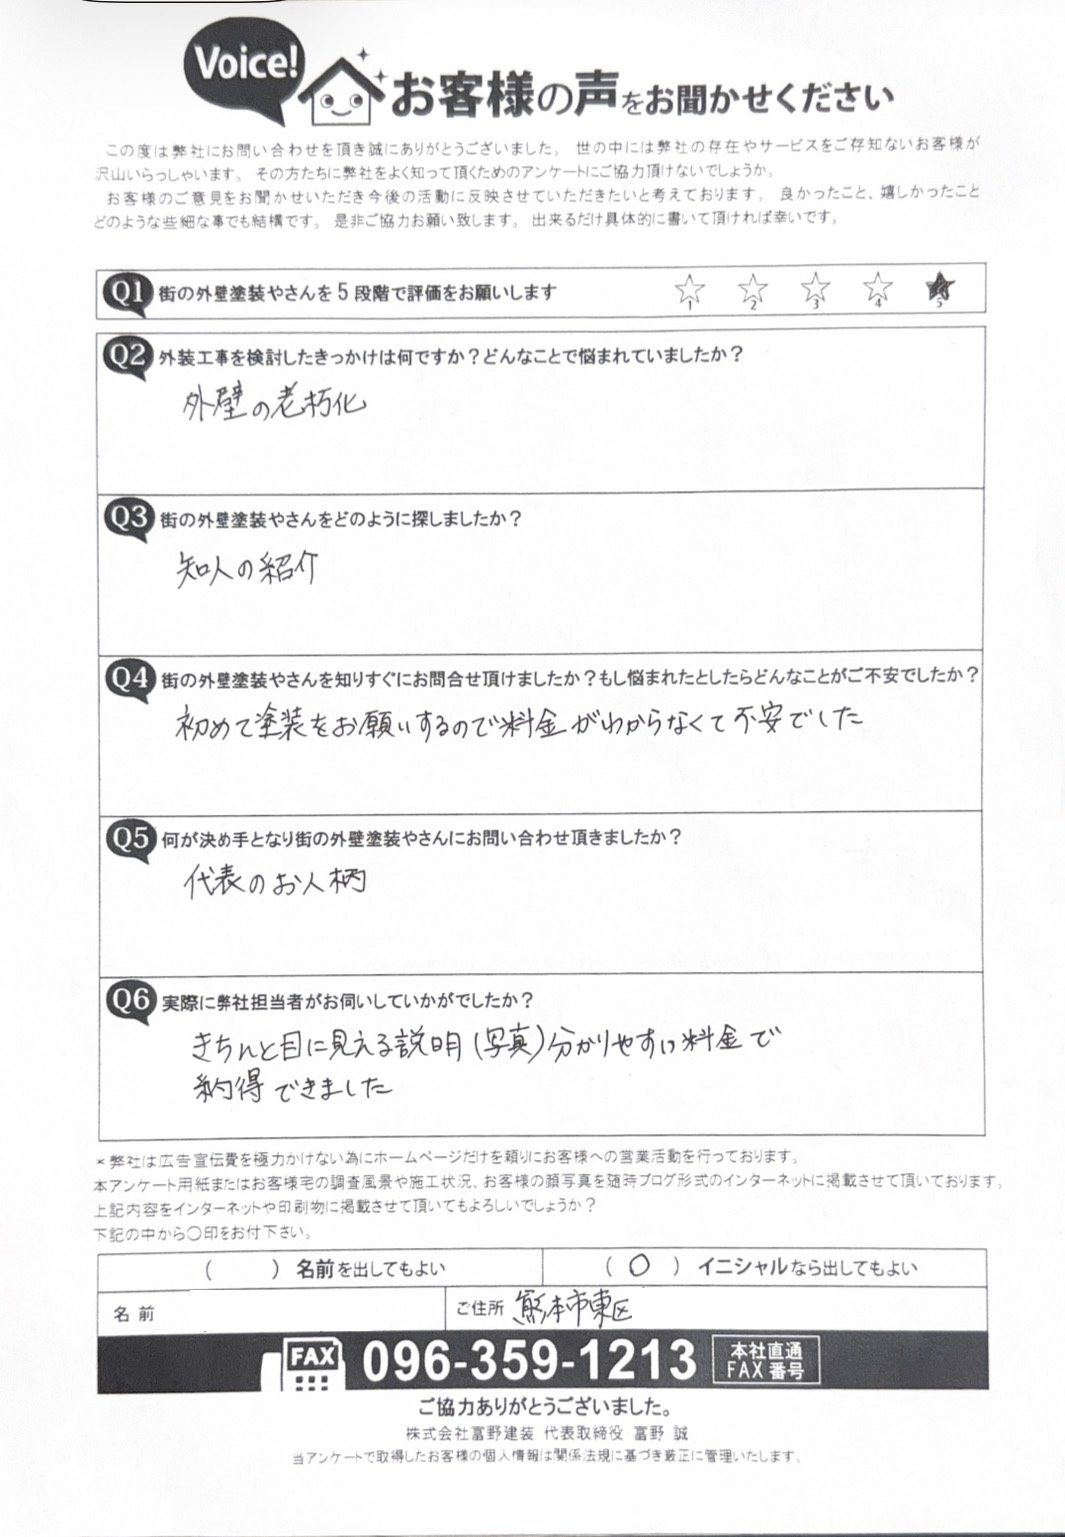 Voice!
お客様の声をお聞かせください
この度は弊社にお問い合わせを頂き誠にありがとうございました。 世の中には弊社の存在やサービスをご存知ないお客様が
沢山いらっしゃいます。 その方たちに弊社をよく知って頂くためのアンケートにご協力頂けないでしょうか。
お客様のご意見をお聞かせいただき今後の活動に反映させていただきたいと考えております。 良かったこと、嬉しかったこと
どのような些細な事でも結構です。 是非ご協力お願い致します。 出来るだけ具体的に書いて頂ければ幸いです。
Q1 街の外壁塗装やさんを5段階で評価をお願いします
1 2 3 4 5
Q2 外装工事を検討したきっかけは何ですか?どんなことで悩まれていましたか?
外壁の老朽化
Q3 街の外壁塗装やさんをどのように探しましたか?
知人の紹介
Q4 街の外壁塗装やさんを知りすぐにお問合せ頂けましたか?もし悩まれたとしたらどんなことがご不安でしたか?
初めて塗装をお願いするので料金がわからなくて不安でした
Q5 何が決め手となり街の外壁塗装やさんにお問い合わせ頂きましたか?
代表のお人柄
Q6 実際に弊社担当者がお伺いしていかがでしたか?
きちんと目に見える説明(写真)分かりやすい料金で
納得できました
*弊社は広告宣伝費を極力かけない為にホームページだけを頼りにお客様への営業活動を行っております。
本アンケート用紙またはお客様宅の調査風景や施工状況、お客様の顔写真を随時ブログ形式のインターネットに掲載させて頂いております。
上記内容をインターネットや印刷物に掲載させて頂いてもよろしいでしょうか?
下記の中から○印をお付下さい。
( ) 名前を出してもよい
( ○ ) イニシャルなら出してもよい
名前
ご住所 熊本市東区
FAX 096-359-1213 本社直通 FAX番号
ご協力ありがとうございました。
株式会社富野建装 代表取締役 富野 誠
当アンケートで取得したお客様の個人情報は関係法規に基づき厳正に管理いたします。